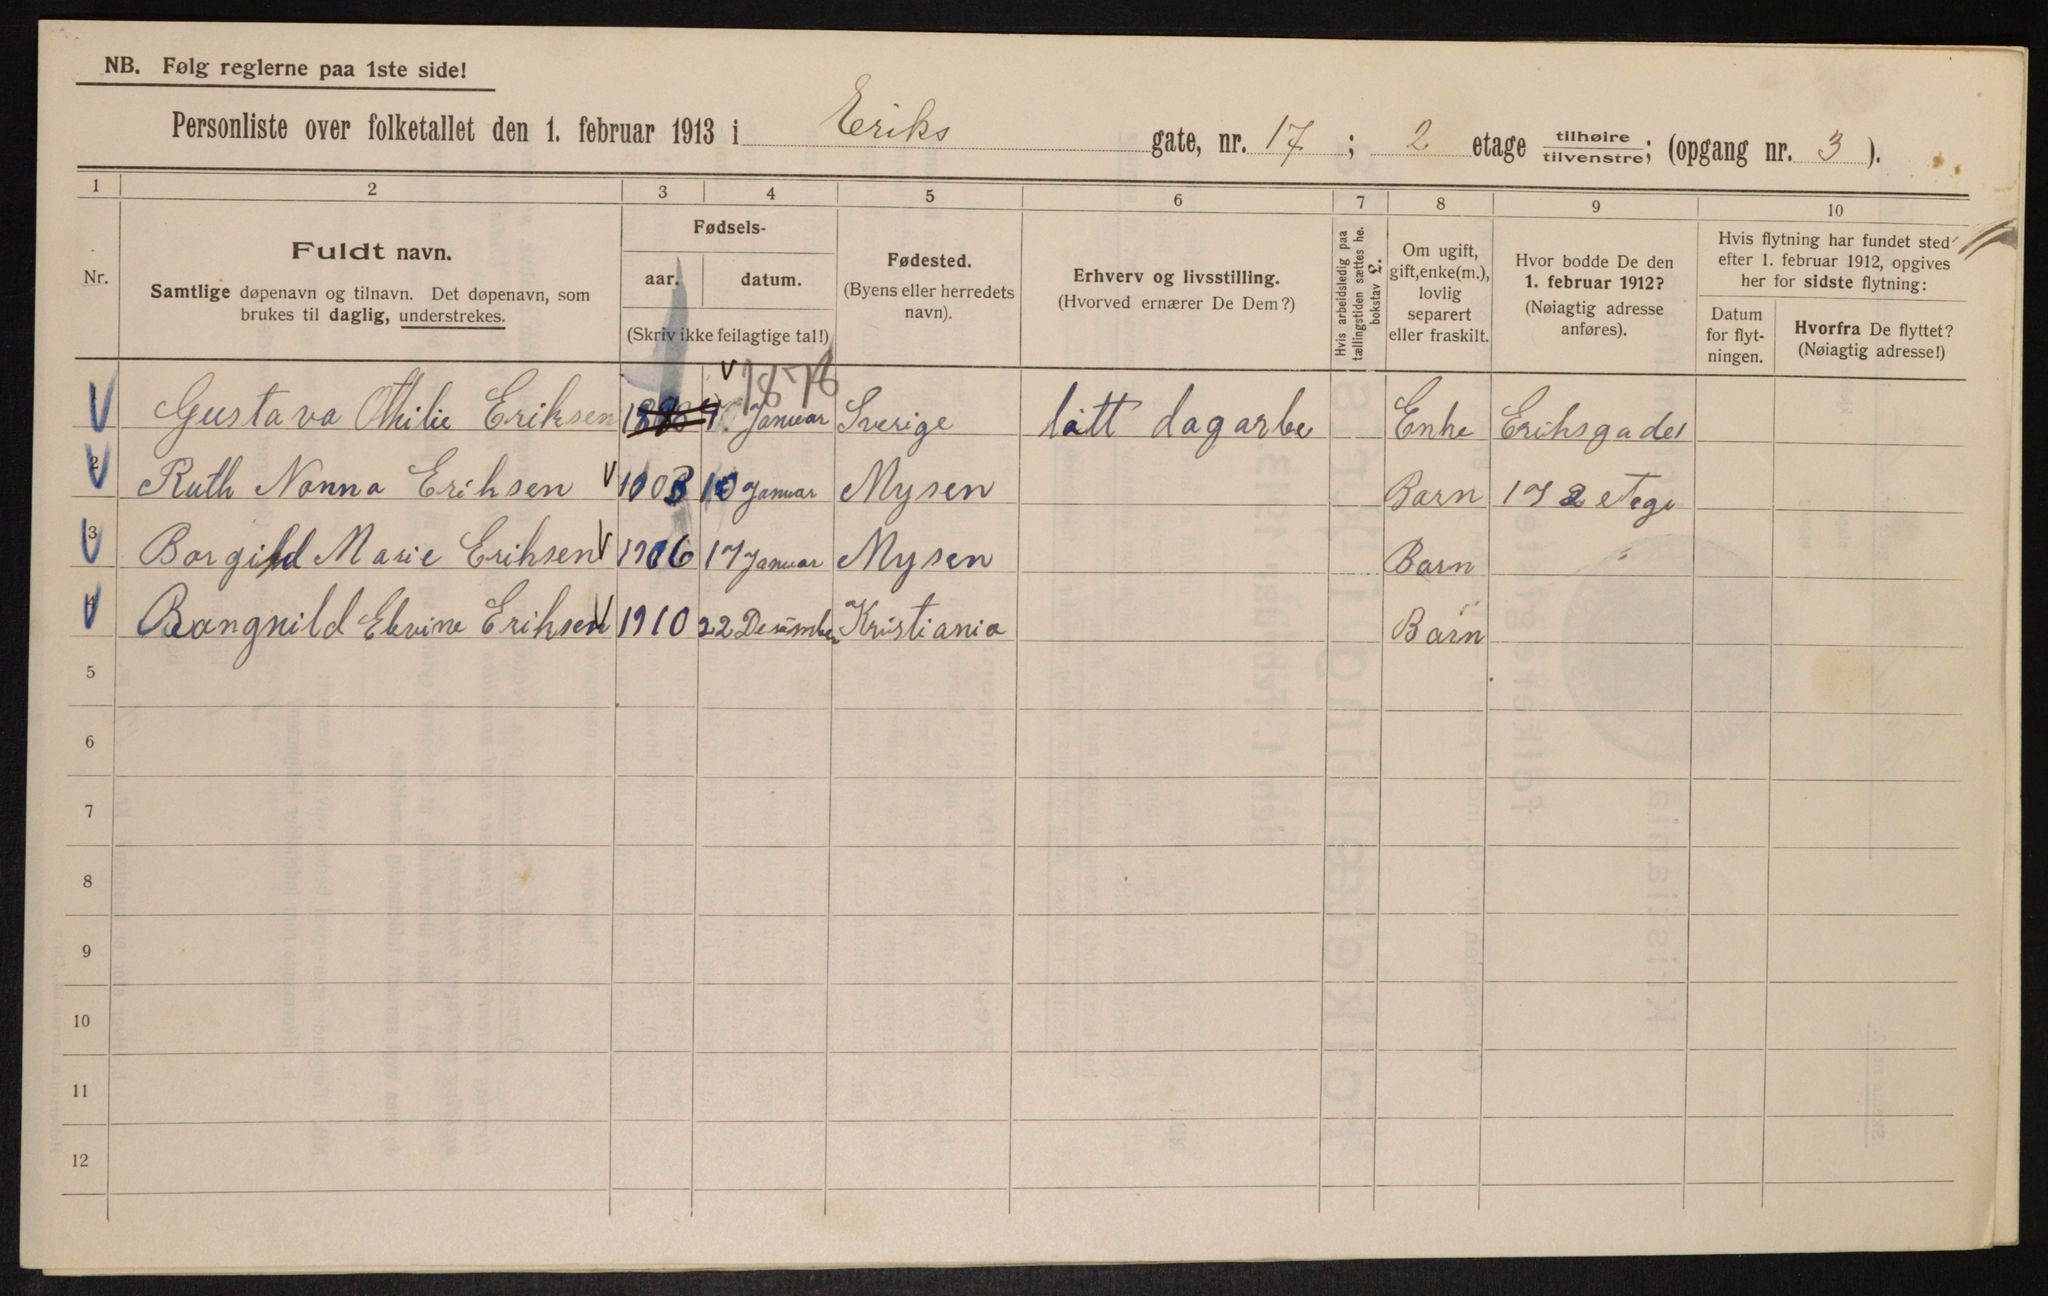 NB. Følg reglerne paa 1ste side!
Personliste over folketallet den 1. februar 1913 i Eriks gate, nr. 17; 2 etage tilhøire tilvenstre; (opgang nr. 3).
1 2 3 4 5 6 7 8 9 10
Nr.
Fuldt navn.
Samtlige døpenavn og tilnavn. Det døpenavn, som
brukes til daglig, understrekes.
Fødsels-
aar. datum.
(Skriv ikke feilagtige tal!)
Fødested.
(Byens eller herredets
navn).
Erhverv og livsstilling.
(Hvorved ernærer De Dem?)
Hvis arbeidsledig paa
tællingstiden sættes he.
bokstav L.
Om ugift,
gift, enke(m.),
lovlig
separert
eller fraskilt.
Hvor bodde De den
1. februar 1912?
(Nøiagtig adresse
anføres).
Hvis flytning har fundet sted
efter 1. februar 1912, opgives
her for sidste flytning:
Datum
for flyt-
ningen.
Hvorfra De flyttet?
(Nøiagtig adresse!)
1878
Gustava Othilie Eriksen Januar Sverige látt dagarbe Enke Eriksgade
2 Ruth Nanna Eriksen 1903 10 Januar Mysen Barn 17 2 etage
3 Borgild Marie Eriksen 1906 17 Januar Mysen Barn "
4 Rangnild Elvine Eriksen 1910 22 Desember Kristiania Barn
5
6
7
8
9
10
11
12